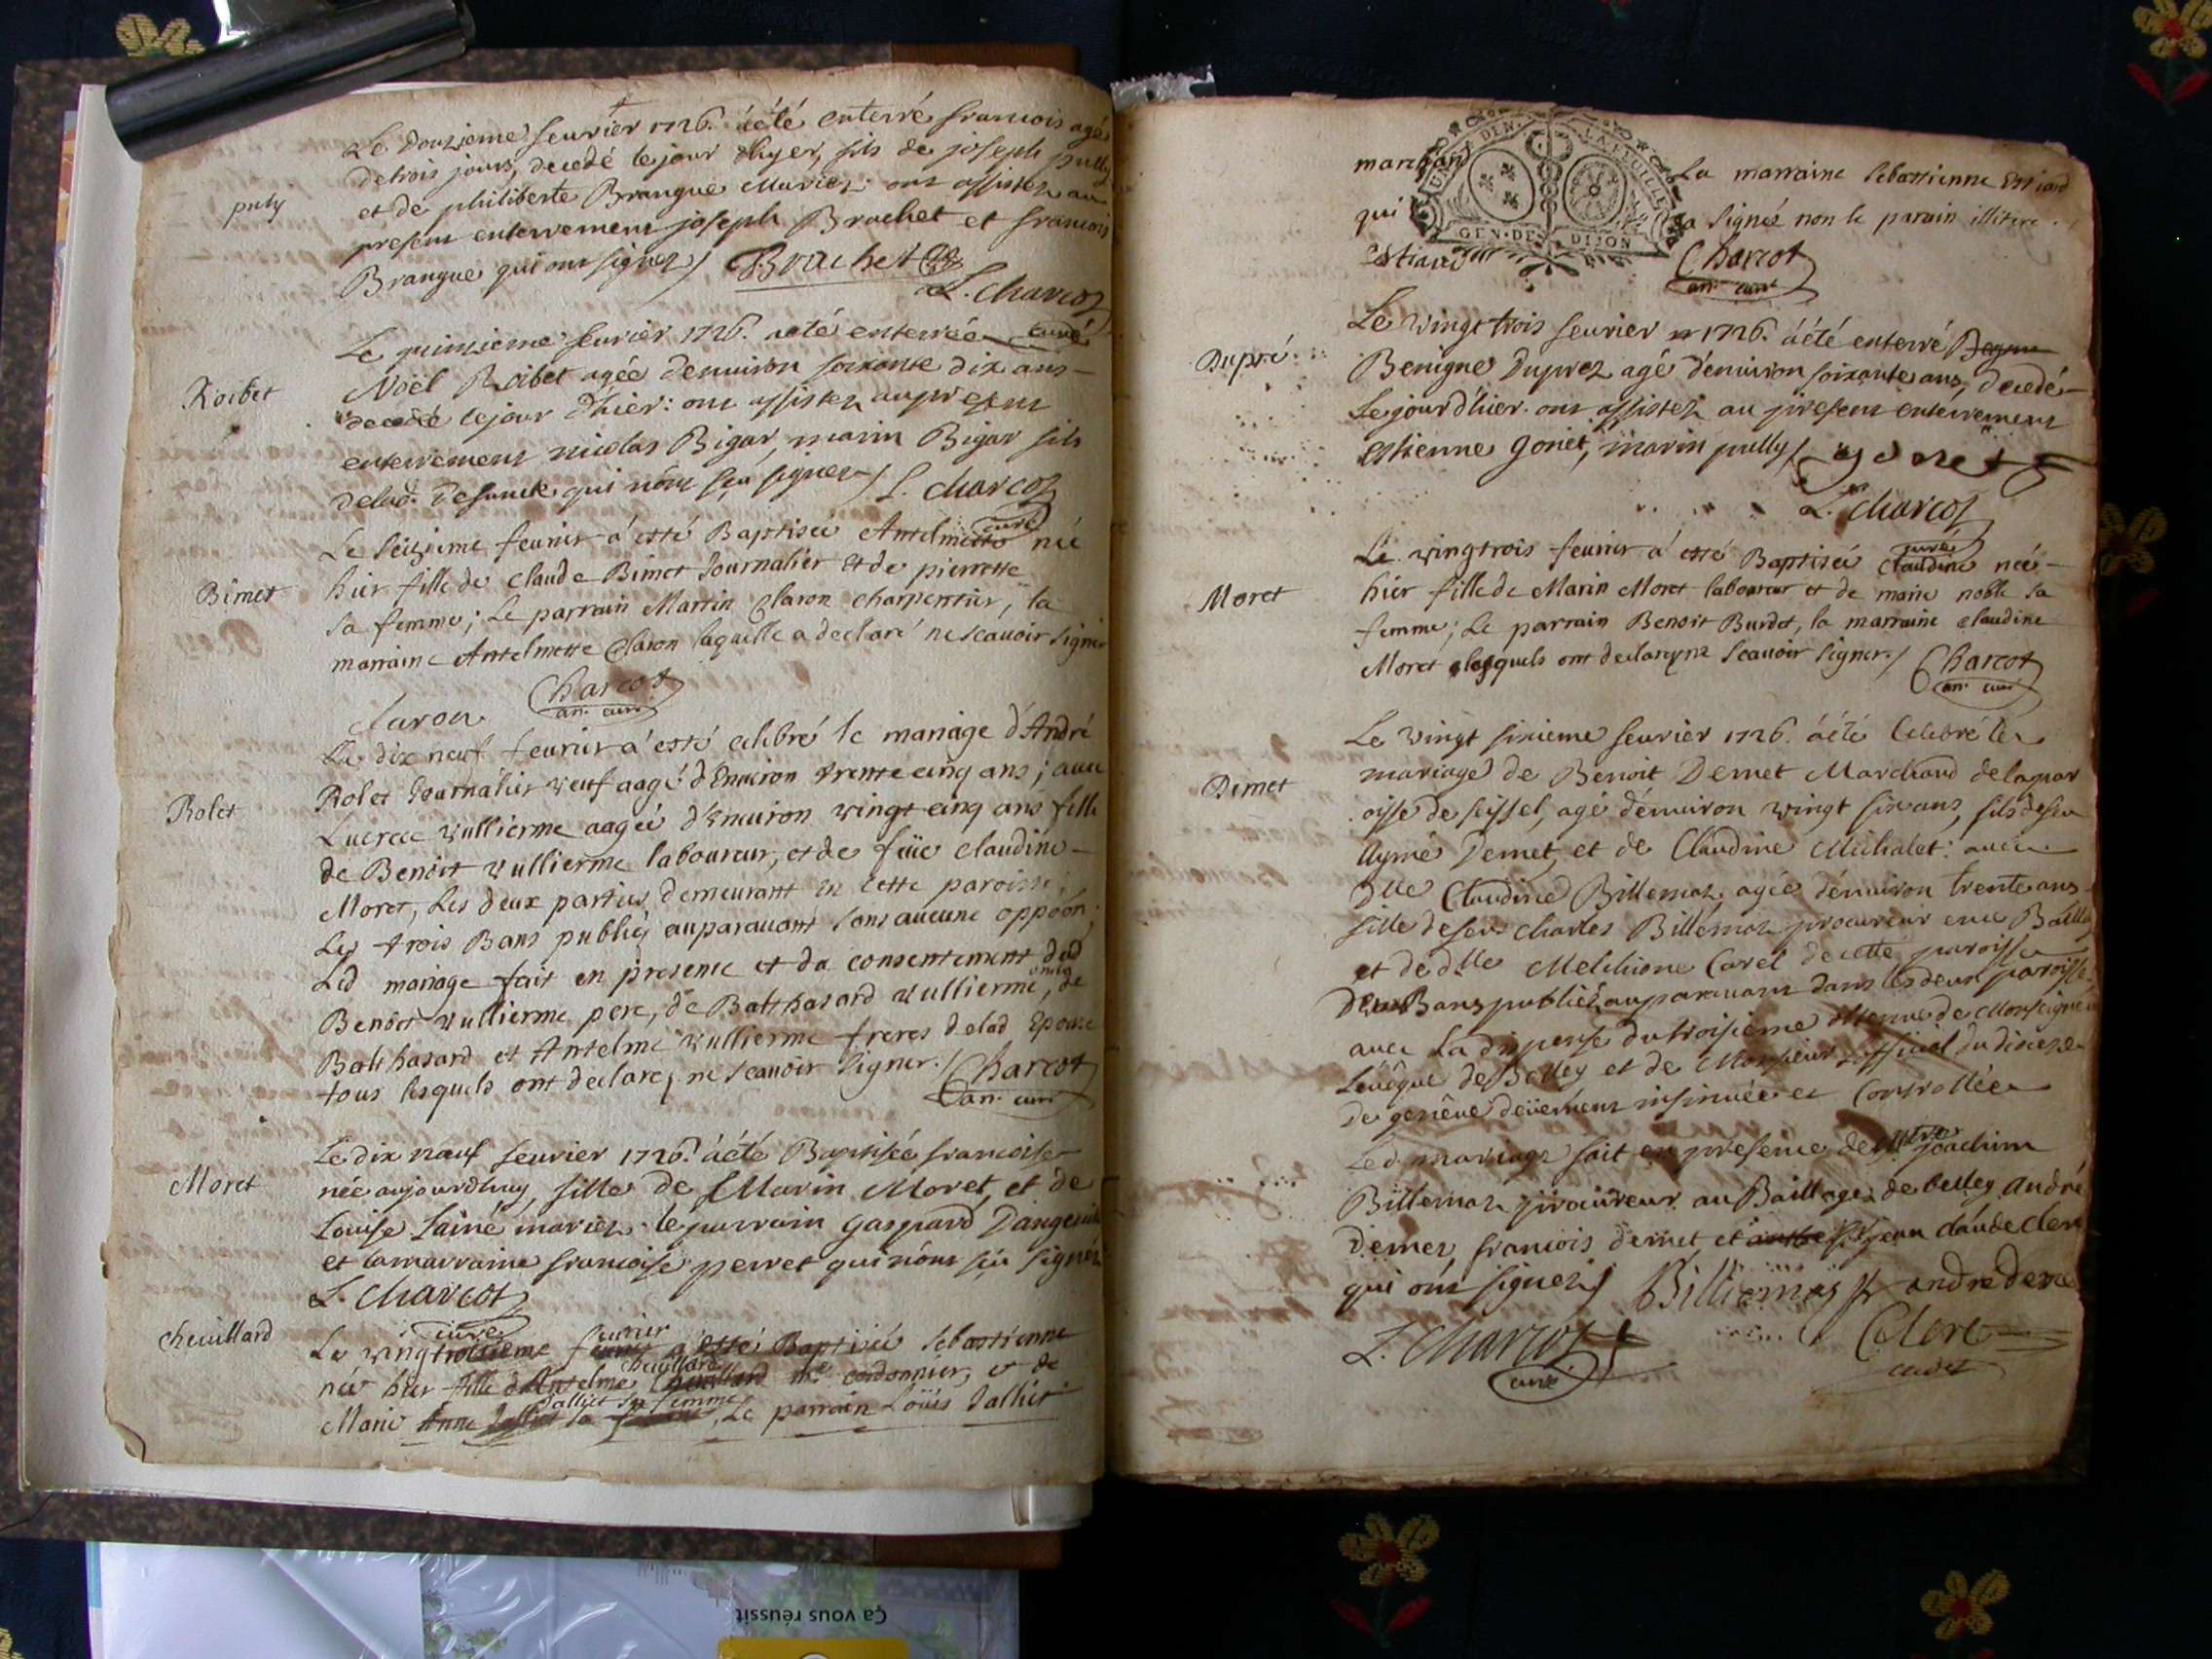 Le Douzieme feurier 1726. a été enterré francois agé
de trois jours, decedé le jour d'hyer, fils de joseph pully
puly
et de philiberte Brangue Mariez. ont assistez au
present enterrement joseph Brachet et francois
Brangue qui ont signez / Brachet
L. Charcot
curé
Le quinzieme feurier 1726. a eté enterrée
Roibet
Noël Roibet agée d'enuiron soixante dix ans
decedé le jour d'hier: ont assistez au present
enterrement nicolas Bigar, marin Bigar fils
de lad. defuncte qui n'ont sçu signer / L. charcot
curé
Le seizieme feurier a esté Baptisée Antelmette née
Bimet
hier fille de Claude Bimet Journalier et de pierrette
sa femme; Le parrain Martin Claron charpentier, la
marraine Antelmette Claron laquelle a declaré ne scauoir signer
Claron Charcot
arr. curé
Le dix neuf feurier a esté celebré le mariage d'André
Rolet
Rolet Journalier veuf aagé d'Enuiron trente cinq ans; auec
Lucrece vullierme aagée d'enuiron vingt cinq ans fille
de Benoit vullierme laboureur, et de füe claudine
Moret, Les deux parties demeurant en cette paroisse;
Les trois Bans publiés auparauant sans aucune oppoon;
Led mariage fait en presence et du consentement dud
Benoit vullierme pere, de Balthasard vullierme, oncle, de
Balthasard et Antelme vullierme freres de lad Epouse
tous lesquels ont declarez ne scauoir signer. / Charcot
arr. curé
Le dix neuf feurier 1726. a eté Baptisée francoise
Moret
née aujourdhuy, fille de Marin Moret, et de
Louise Lainé mariez. le parrain gaspard Dangeuille
et la marraine francoise perret qui n'ont sçu signer
L. Charcot
curé
cheuillard
Le vingtroisieme feurier a esté Baptisée sebastienne
née hier fille d'Antelme cheuillard me cordonnier, et de
Marie Jalliet sa femme, Le parrain Loüis Jalliet
marchand La marraine sebastienne Estiard
qui a signée non le parain illitere.
GEN. DE DIJON
Estiard Charcot
arr. curé
Le vingt trois feurier 1726. a été enterré
Dupré
Benigne Duprez agé d'enuiron soixante ans, decedé
le jour d'hier. ont assistez au present enterrement
estienne gonet, marin pully / gonet
L. charcot
curé
Le vingtrois feurier a esté Baptisée Claudine née
Moret
hier fille de Marin Moret laboureur et de marie noble sa
femme; Le parrain Benoit Burdet, la marraine claudine
Moret lesquels ont declarez ne scauoir signer. / Charcot
arr. curé
Le vingt sixieme feurier 1726. a été Celebré le
Demet
mariage de Benoit Demet Marchand de la par
oisse de seissel, agé d'enuiron vingt six ans, fils de feu
Aymé Demet, et de Claudine Michalet: auec
Dlle Claudine Billemaz agée d'enuiron trente ans
fille de feu Charles Billemaz procureur
et de dlle Melchione Carel de cette paroisse
Deux Bans publiez auparauant dans les deux paroisses
auec La dispense du troisieme obtenue de Monseigneur
L'euêque de Belley et de Monsieur L'official du diocese
de genêue deüement insinuée et Controllée
Led. mariage fait en presence de Mtre joachim
Billemaz procureur au Baillage de belley André
Demet, francois demet, et jean claude clerc
qui ont signez / Billiemaz andre deme
L. Charcot Clerc
curé cadet
Ça vous réussit